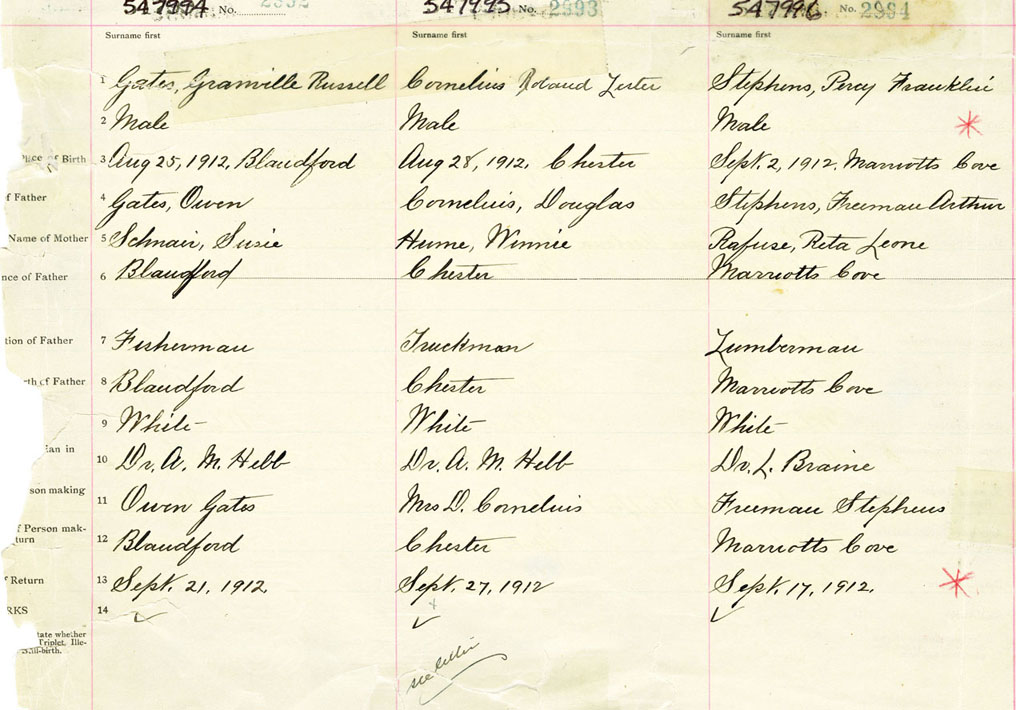 547994 No. 2992 547995 No. 2993 547996 No. 2994
Surname first Surname first Surname first
1 Gates, Granville Russell Cornelius Roland Lester Stephens, Percy Franklin
2 Male Male Male *
Place of Birth 3 Aug 25, 1912, Blandford Aug 28, 1912, Chester Sept. 2, 1912, Marriotts Cove
f Father 4 Gates, Owen Cornelius, Douglas Stephens, Freeman Arthur
Name of Mother 5 Schnair, Susie Hume, Winnie Rafuse, Reta Leone
nce of Father 6 Blandford Chester Marriotts Cove
tion of Father 7 Fisherman Truckman Lumberman
rth of Father 8 Blandford Chester Marriotts Cove
9 White White White
ian in 10 Dr. A. M. Hebb Dr. A. M. Hebb Dr. L. Braine
son making 11 Owen Gates Mrs D. Cornelius Freeman Stephens
f Person mak-
turn 12 Blandford Chester Marriotts Cove
f Return 13 Sept. 21, 1912. Sept. 27, 1912 Sept. 17, 1912. *
RKS 14 ✓ ✓ ✓
tate whether
Triplet, Ille-
Still-birth.
see